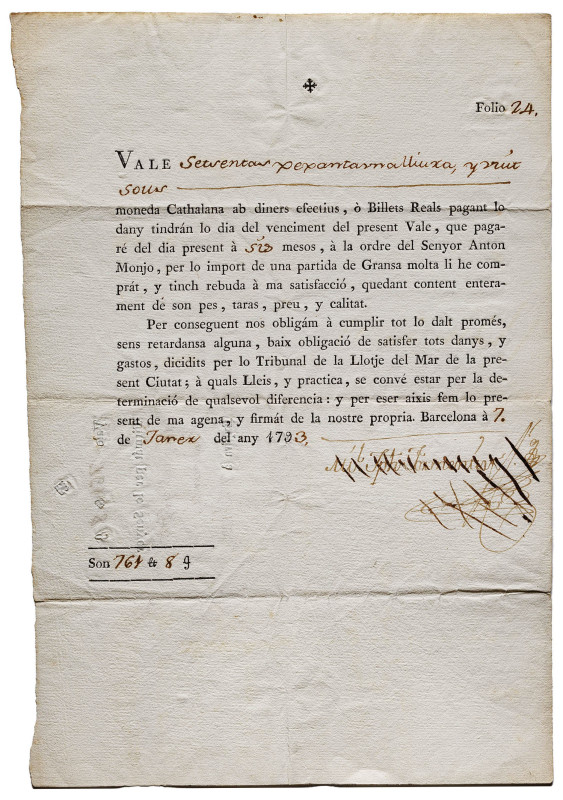 Folio 24.
VALE Setsentas xexantauna lliura, y vuit
sous
moneda Cathalana ab diners efectius, ò Billets Reals pagant lo
dany tindrán lo dia del venciment del present Vale, que paga-
ré del dia present à sis mesos, à la ordre del Senyor Anton
Monjo, per lo import de una partida de Gransa molta li he com-
prát, y tinch rebuda à ma satisfacció, quedant content entera-
ment de son pes, taras, preu, y calitat.
Per conseguent nos obligám à cumplir tot lo dalt promés,
sens retardansa alguna, baix obligació de satisfer tots danys, y
gastos, dicidits per lo Tribunal de la Llotje del Mar de la pre-
sent Ciutat; à quals Lleis, y practica, se convé estar per la de-
terminació de qualsevol diferencia: y per eser aixis fem lo pre-
sent de ma agena, y firmát de la nostre propria. Barcelona à 7.
de Janer del any 1793.
Son 761 ₶ 8 ş